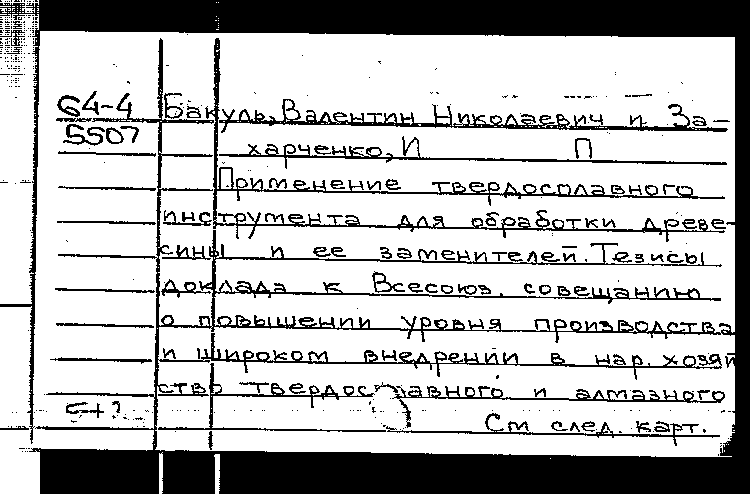 64-4 Бакуль, Валентин Николаевич и За-
5507
харченко, И П
Применение твердосплавного
инструмента для обработки древе-
сины и ее заменителей. Тезисы
доклада к Всесоюз. совещанию
о повышении уровня производства
и широком внедрении в нар. хозяй
ство твердосплавного и алмазного
См след. карт.